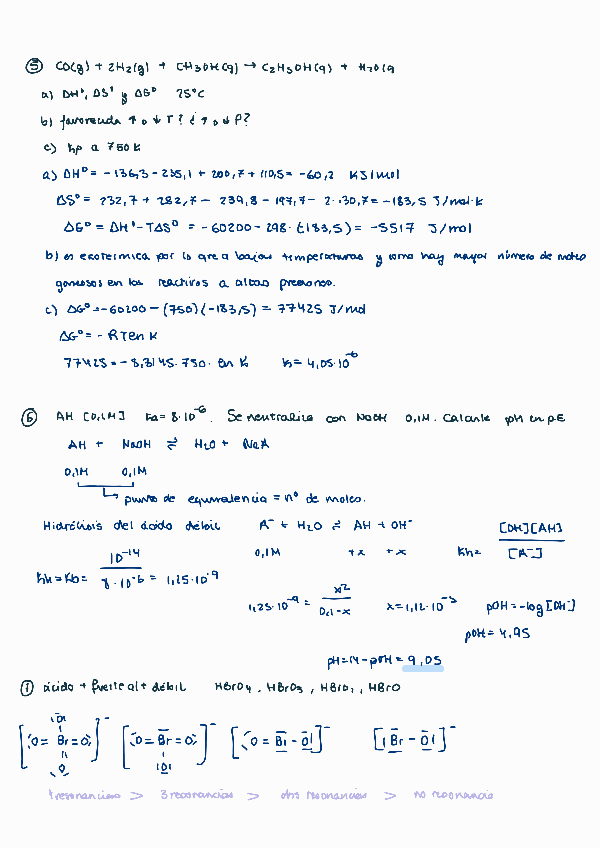 ⑤ CO(g) + 2H2(g) + CH3OH(g) → C2H5OH(g) + H2O(g
a) ΔHº, ΔSº y ΔGº 25ºC
b) favorecida ↑ o ↓ T? ¿ ↑ o ↓ P?
c) Kp a 750K
a) ΔHº = -136,3 - 235,1 + 200,7 + 110,5 = -60,2 KJ/mol
ΔSº = 232,7 + 282,7 - 239,8 - 197,7 - 2·130,7 = -183,5 J/mol·K
ΔGº = ΔHº - TΔSº = -60200 - 298·(-183,5) = -5517 J/mol
b) es exotérmica por lo que a bajas temperaturas y como hay mayor número de moles
gaseosos en los reactivos a altas presiones.
c) ΔGº = -60200 - (750)(-183,5) = 77425 J/mol
ΔGº = - RT ln K
77425 = - 8,3145·750· ln K K = 4,05·10⁻⁶
⑥ AH [0,1M] Ka = 8·10⁻⁶. Se neutraliza con NaOH 0,1M. Calcula pH en p.E
AH + NaOH ⇌ H2O + NaA
0,1M 0,1M
↳ punto de equivalencia = nº de moles.
Hidrólisis del ácido débil A⁻ + H2O ⇌ AH + OH⁻ [OH][AH]
0,1M +x +x Kh = [A⁻]
Kh = Kb = 10⁻¹⁴ / 8·10⁻⁶ = 1,25·10⁻⁹
1,25·10⁻⁹ = x² / 0,1-x x = 1,12·10⁻⁵ pOH = -log[OH⁻]
pOH = 4,95
pH = 14 - pOH = 9,05
① ácido + fuerte al + débil HBrO4, HBrO3, HBrO2, HBrO
[O = Br = O]⁻ [O = Br = O]⁻ [O = Br - O]⁻ [Br - O]⁻
4 resonancias > 3 resonancias > dos resonancias > no resonancia